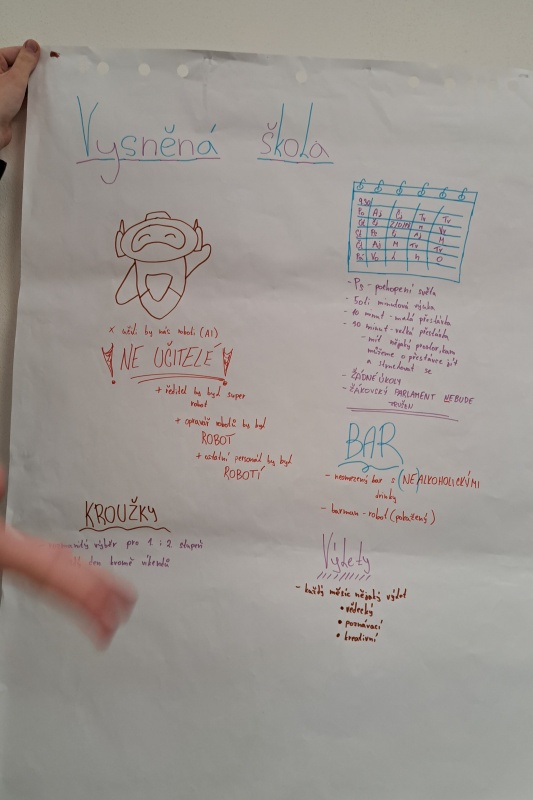 Vysněná škola
Po Aj Pj Tv Tv
Čj M Tv Tv
- Ps - pochopení světa
- 50ti minutová výuka
- 10 minut - malá přestávka
- 50 minut - velká přestávka
- mít nějaký prostor, kam
můžeme o přestávce jít
a
se
- ŽÁDNÉ ÚKOLY
- ŽÁKOVSKÝ PARLAMENT NEBUDE
x učili by nás roboti (AI)
! NE UČITELÉ !
+ ředitel by byl super
robot
+ opravář robotů by byl
ROBOT
+ ostatní personál by byl
ROBOTÍ
BAR
- neomezený bar s (NE)ALKOHOLICKÝMI
drinky
- barman - robot (pokažený)
KROUŽKY
výběr pro 1 i 2 stupeň
den kromě víkendů
Výlety
- každý měsíc nějaký výlet
• vědecký
• poznávací
• kreativní